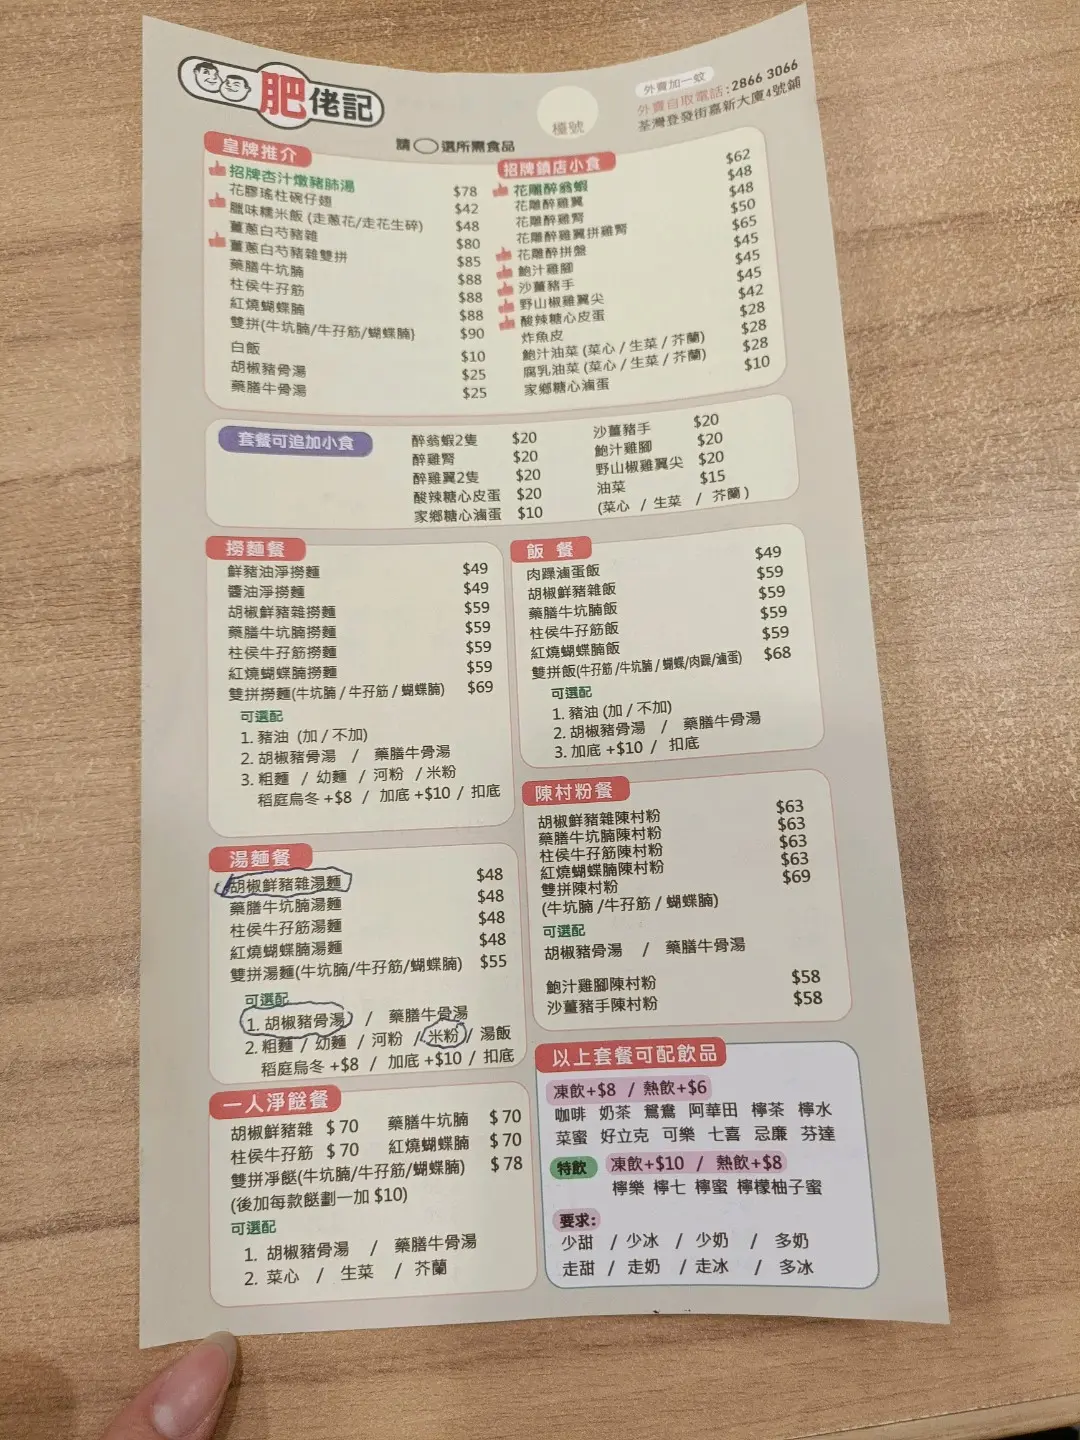 肥佬記
外賣加一蚊
外賣自取電話:2866 3066
荃灣登發街嘉新大廈4號鋪
檯號
請○選所需食品
皇牌推介
招牌杏汁燉豬肺湯 $78
花膠瑤柱碗仔翅 $42
臘味糯米飯 (走蔥花/走花生碎) $48
薑蔥白芍豬雜 $80
薑蔥白芍豬雜雙拼 $85
藥膳牛坑腩 $88
柱侯牛孖筋 $88
紅燒蝴蝶腩 $88
雙拼(牛坑腩/牛孖筋/蝴蝶腩} $90
白飯 $10
胡椒豬骨湯 $25
藥膳牛骨湯 $25
招牌鎮店小食
花雕醉翁蝦 $62
花雕醉雞翼 $48
花雕醉雞腎 $48
花雕醉雞翼拼雞腎 $50
花雕醉拼盤 $65
鮑汁雞腳 $45
沙薑豬手 $45
野山椒雞翼尖 $45
酸辣糖心皮蛋 $42
炸魚皮 $28
鮑汁油菜 (菜心 / 生菜 / 芥蘭) $28
腐乳油菜 (菜心 / 生菜 / 芥蘭) $28
家鄉糖心滷蛋 $10
套餐可追加小食
醉翁蝦2隻 $20
醉雞腎 $20
醉雞翼2隻 $20
酸辣糖心皮蛋 $20
家鄉糖心滷蛋 $10
沙薑豬手 $20
鮑汁雞腳 $20
野山椒雞翼尖 $20
油菜 $15
(菜心 / 生菜 / 芥蘭 )
撈麵餐
鮮豬油淨撈麵 $49
醬油淨撈麵 $49
胡椒鮮豬雜撈麵 $59
藥膳牛坑腩撈麵 $59
柱侯牛孖筋撈麵 $59
紅燒蝴蝶腩撈麵 $59
雙拼撈麵(牛坑腩 / 牛孖筋 / 蝴蝶腩) $69
可選配
1. 豬油 (加 / 不加)
2. 胡椒豬骨湯 / 藥膳牛骨湯
3. 粗麵 / 幼麵 / 河粉 / 米粉
稻庭烏冬 +$8 / 加底 +$10 / 扣底
飯 餐
肉躁滷蛋飯 $49
胡椒鮮豬雜飯 $59
藥膳牛坑腩飯 $59
柱侯牛孖筋飯 $59
紅燒蝴蝶腩飯 $59
雙拼飯(牛孖筋 / 牛坑腩 / 蝴蝶/肉躁/滷蛋) $68
可選配
1. 豬油 (加 / 不加)
2. 胡椒豬骨湯 / 藥膳牛骨湯
3. 加底 +$10 / 扣底
陳村粉餐
胡椒鮮豬雜陳村粉 $63
藥膳牛坑腩陳村粉 $63
柱侯牛孖筋陳村粉 $63
紅燒蝴蝶腩陳村粉 $63
雙拼陳村粉 $69
(牛坑腩 /牛孖筋 / 蝴蝶腩)
可選配
胡椒豬骨湯 / 藥膳牛骨湯
鮑汁雞腳陳村粉 $58
沙薑豬手陳村粉 $58
湯麵餐
胡椒鮮豬雜湯麵 $48
藥膳牛坑腩湯麵 $48
柱侯牛孖筋湯麵 $48
紅燒蝴蝶腩湯麵 $48
雙拼湯麵(牛坑腩/牛孖筋/蝴蝶腩) $55
可選配
1. 胡椒豬骨湯 / 藥膳牛骨湯
2. 粗麵 / 幼麵 / 河粉 / 米粉 / 湯飯
稻庭烏冬 +$8 / 加底 +$10 / 扣底
一人淨餸餐
胡椒鮮豬雜 $70 藥膳牛坑腩 $70
柱侯牛孖筋 $70 紅燒蝴蝶腩 $70
雙拼淨餸(牛坑腩/牛孖筋/蝴蝶腩) $78
(後加每款餸劃一加 $10)
可選配
1. 胡椒豬骨湯 / 藥膳牛骨湯
2. 菜心 / 生菜 / 芥蘭
以上套餐可配飲品
凍飲+$8 / 熱飲+$6
咖啡 奶茶 鴛鴦 阿華田 檸茶 檸水
菜蜜 好立克 可樂 七喜 忌廉 芬達
特飲 凍飲+$10 / 熱飲+$8
檸樂 檸七 檸蜜 檸檬柚子蜜
要求:
少甜 / 少冰 / 少奶 / 多奶
走甜 / 走奶 / 走冰 / 多冰